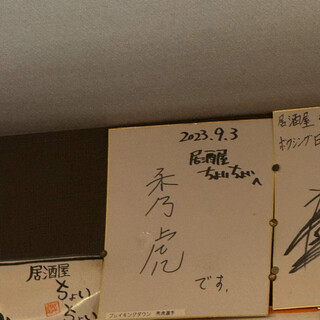 2023.9.3
居酒屋
ちょいちょいへ
秀虎
です。
ブレイキングダウン
居酒屋
ちょい
ちょい
居酒屋
ボクシング